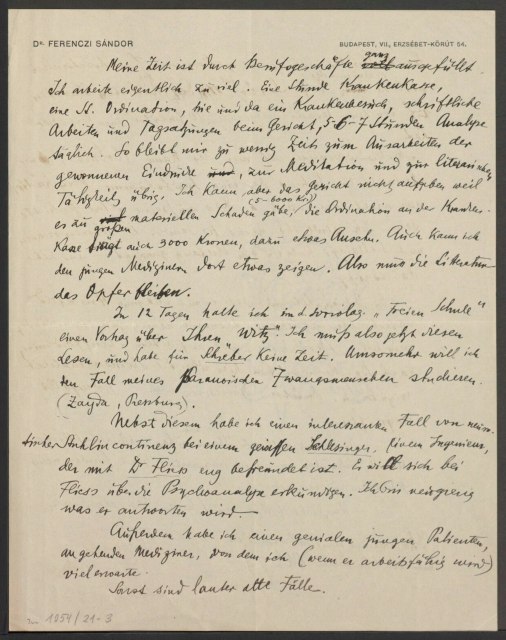 Dr. FERENCZI SÁNDOR
BUDAPEST, VII., ERZSÉBET-KÖRÚT 54.
Meine Zeit ist durch Berufsgeschäfte ganz ausgefüllt.
Ich arbeite eigentlich zu viel. Eine Stunde Krankenkasse,
eine N. Ordination, hie und da ein Krankenbesuch, schriftliche
Arbeiten und Tagsatzungen beim Gericht, 5-6-7 Stunden Analyse
täglich. So bleibt mir zu wenig Zeit zum Ausarbeiten der
gewonnenen Eindrücke und, zur Meditation und zur literarischen
Tätigkeit übrig. Ich kann aber das Gericht nicht aufgeben weil
es zu großen materiellen Schaden gäbe, (5-6000 Kr) die Ordination an der Kranken-
Kasse trägt auch 3000 Kronen, dazu etwas Ansehn. Auch kann ich
den jungen Medizinern dort etwas zeigen. Also muß die Litteratur
das Opfer bleiben.
In 12 Tagen halte ich in d. soziolog. "Freien Schule"
einen Vortrag über Ihren "Witz". Ich muß also jetzt diesen
lesen, und habe für Schreber keine Zeit. Umsomehr will ich
den Fall meines Paranoischen Zwangsmenschen studieren.
(Zayda, Pressburg).
Nebst diesem habe ich einen interessanten Fall von neuro-
tischer Stuhlincontinenz bei einem gewissen Schlesinger, einem Ingenieur,
der mit Dr Fliess eng befreundet ist. Er will sich bei
Fliess über die Psychoanalyse erkundigen. Ich bin neugierig
was er antworten wird.
Außerdem habe ich einen genialen jungen Patienten,
angehenden Mediziner, von dem ich (wenn er arbeitsfähig wird)
viel erwarte.
Sonst sind lauter alte Fälle.
1054/21-3